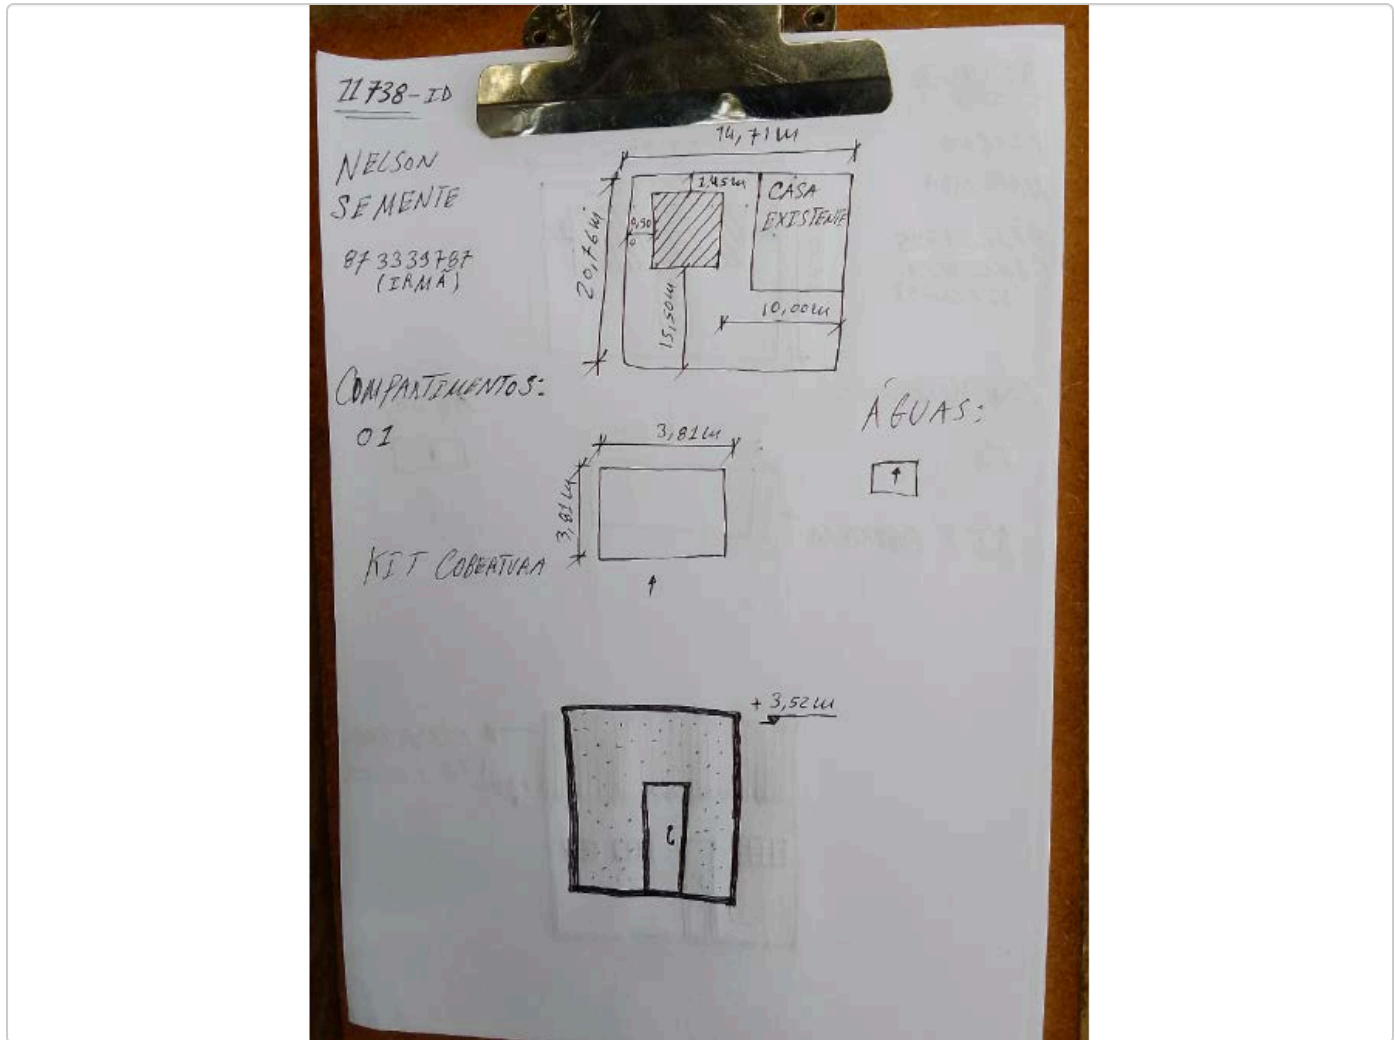 11738-ID
NELSON
SEMENTE
87 3339787
(IRMÃ)
14,71m
1,45m
CASA
EXISTENTE
0,90
20,76m
15,50m
10,00m
COMPARTIMENTOS:
01
ÁGUAS:
3,81m
3,81m
KIT COBERTURA
+ 3,52m